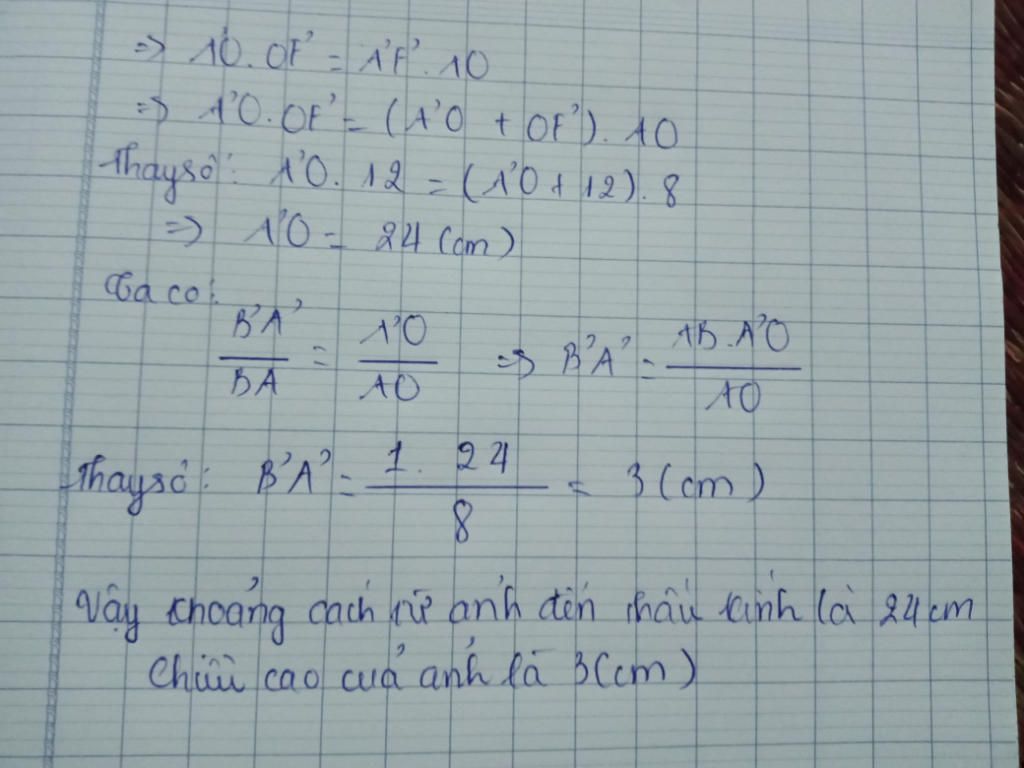 => A'O. OF' = A'F'. AO
=> A'O. OF' = (A'O + OF'). AO
Thay số: A'O. 12 = (A'O + 12). 8
=> A'O = 24 (cm)
Ta có:
B'A' / BA = A'O / AO => B'A' = AB. A'O / AO
Thay số: B'A' = 1. 24 / 8 = 3 (cm)
Vậy khoảng cách từ ảnh đến thấu kính là 24 cm
Chiều cao của ảnh là 3 (cm)